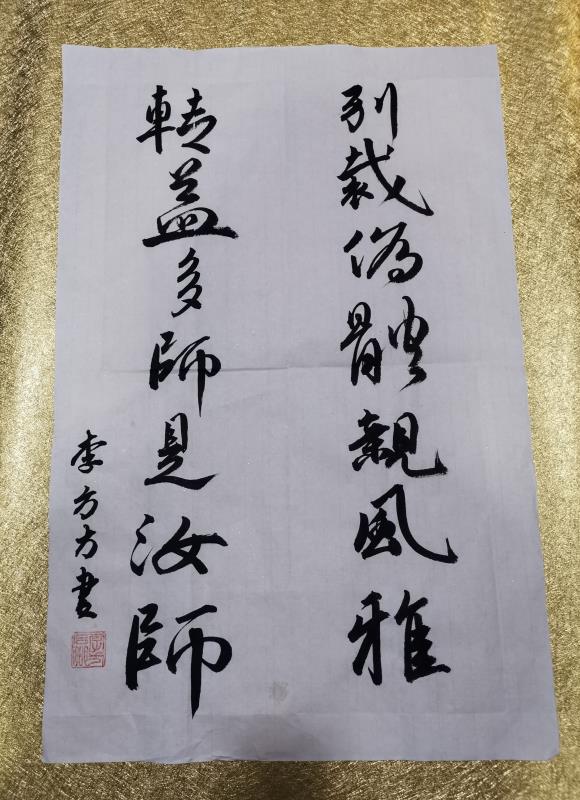 别裁偽體親風雅
轉益多師是汝師
李方方書